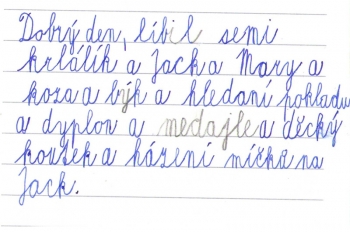 Dobrý den, líbil semi
krlálík a Jack a Mary a
koza a býk a hledaní pokladu
a dyplon a medajle a děcký
koužek a házení míčka na
Jack.